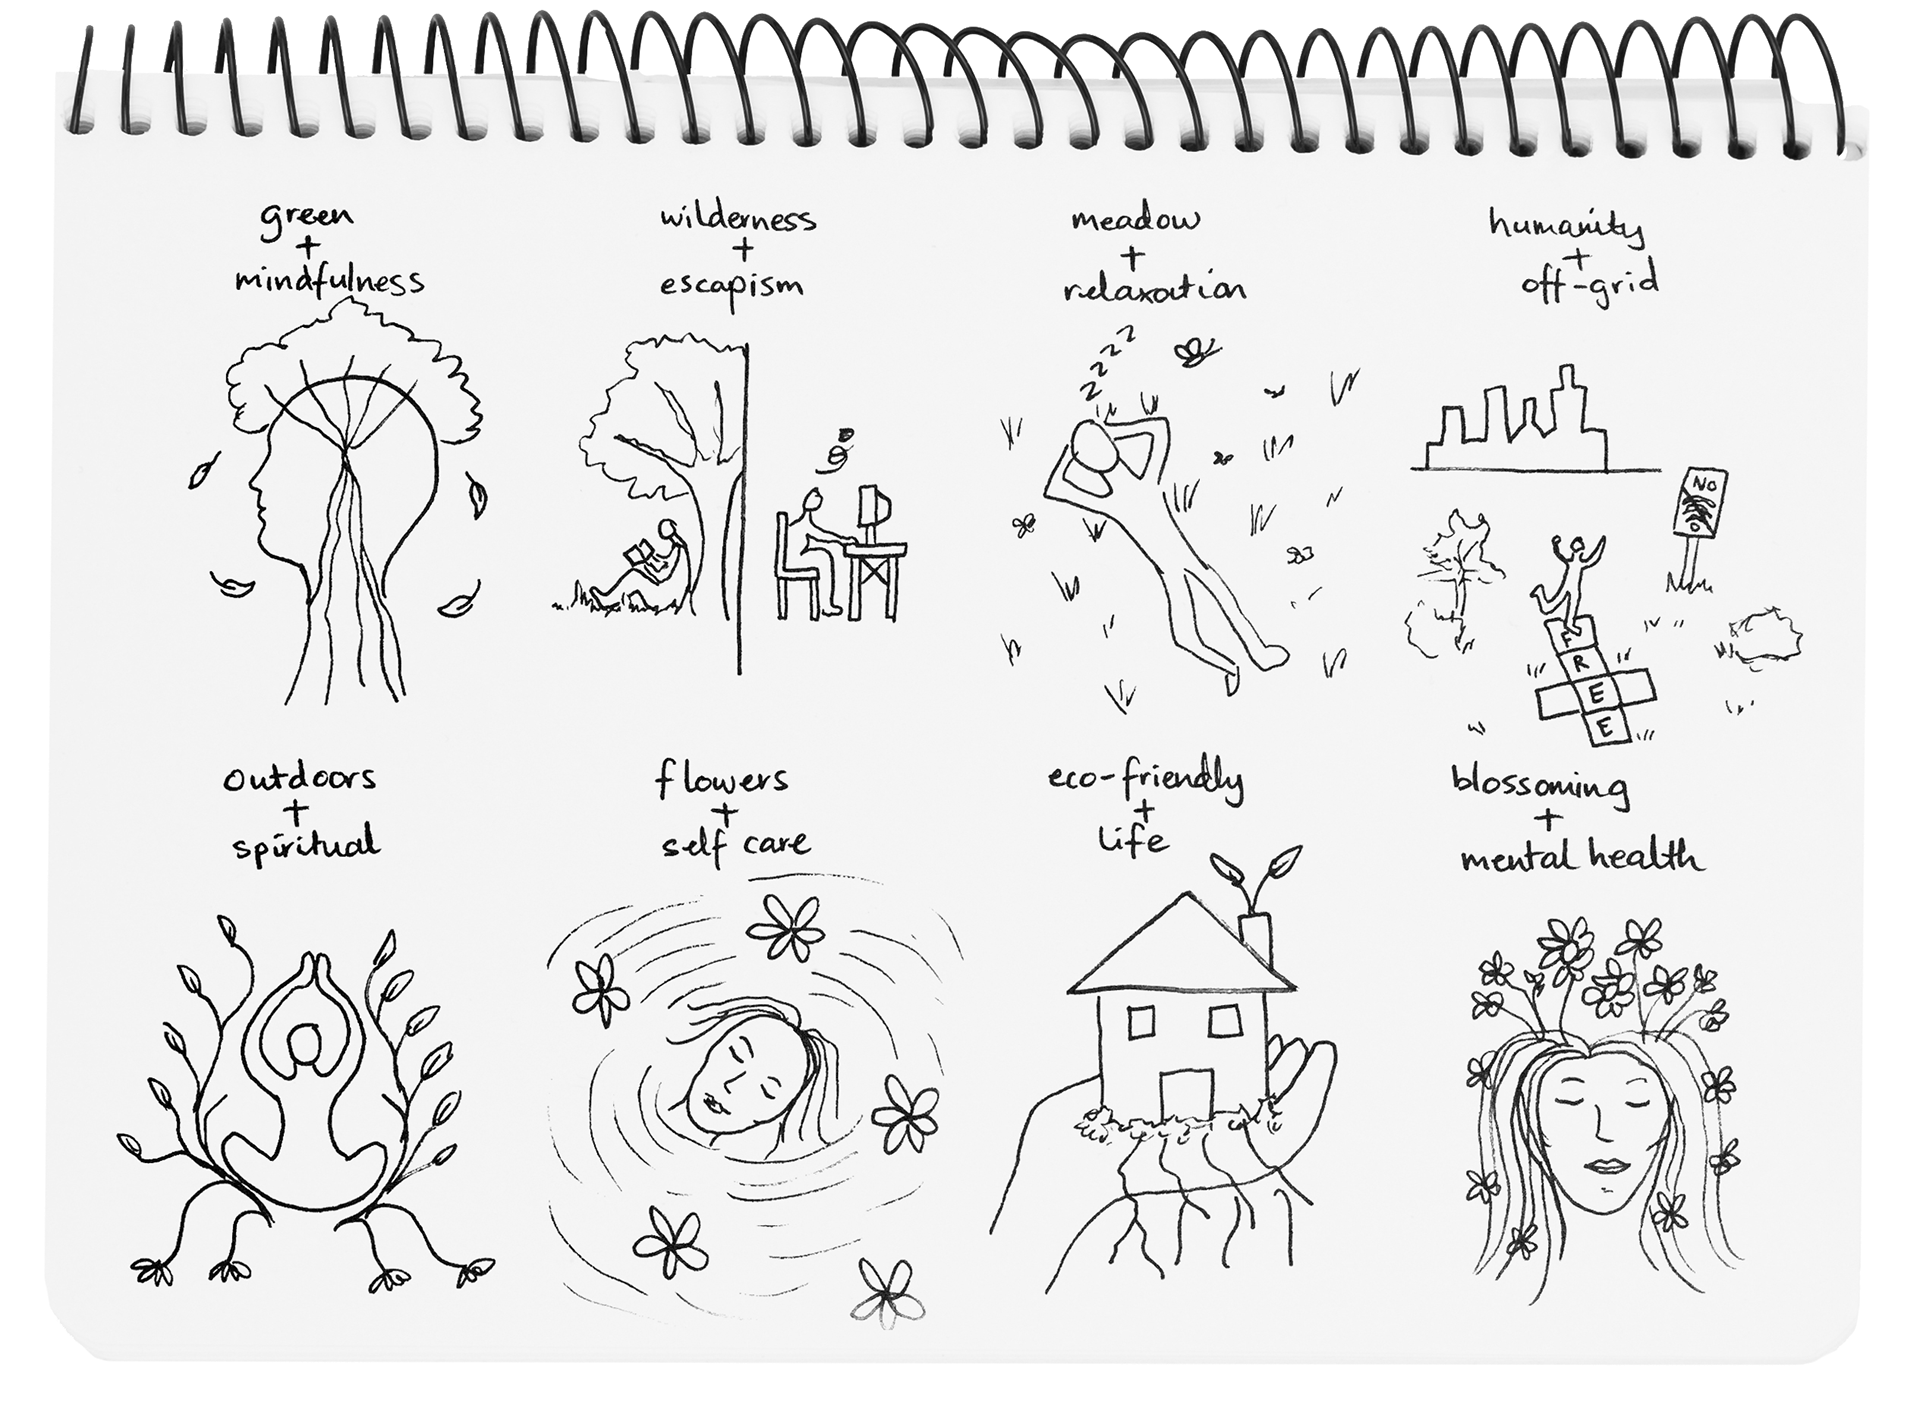 green
+
mindfulness
wilderness
+
escapism
meadow
+
relaxation
zzzz
humanity
+
off-grid
NO
F
R
E
E
outdoors
+
spiritual
flowers
+
self care
eco-friendly
+
life
blossoming
+
mental health